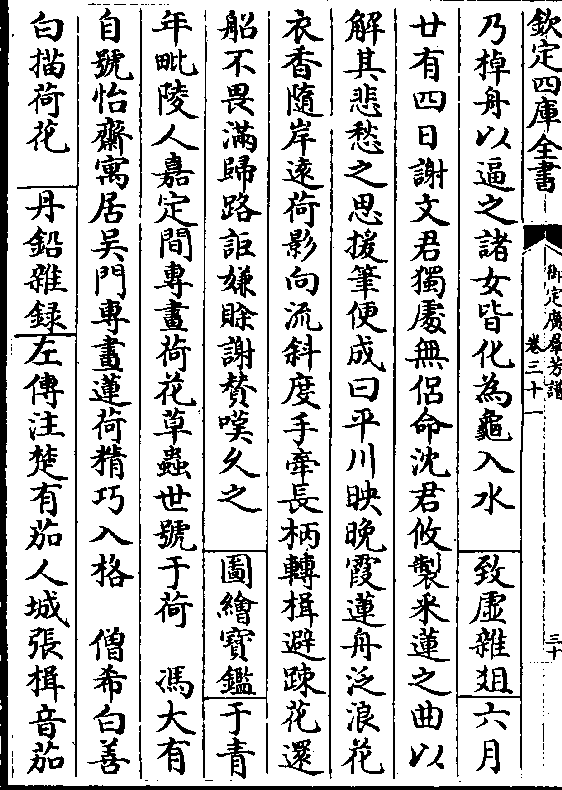 欽定四庫全書
御定廣羣芳譜
卷三十一
三十
乃棹舟以逼之諸女皆化為龜入水 致虛雜俎 六月
廿有四日謝文君獨處無侶命沈君攸製采蓮之曲以
解其悲愁之思援筆便成曰平川映晚霞蓮舟泛浪花
衣香隨岸遠荷影向流斜度手牽長柄轉楫避踈花還
船不畏滿歸路詎嫌賒謝賛嘆久之 圖繪寶鑑 于青
年毗陵人嘉定間專畫荷花草蟲世號于荷 馮大有
自號怡齋寓居吳門專畫蓮荷精巧入格 僧希白善
白描荷花 丹鉛雜録 左傳注楚有茄人城張揖音茄